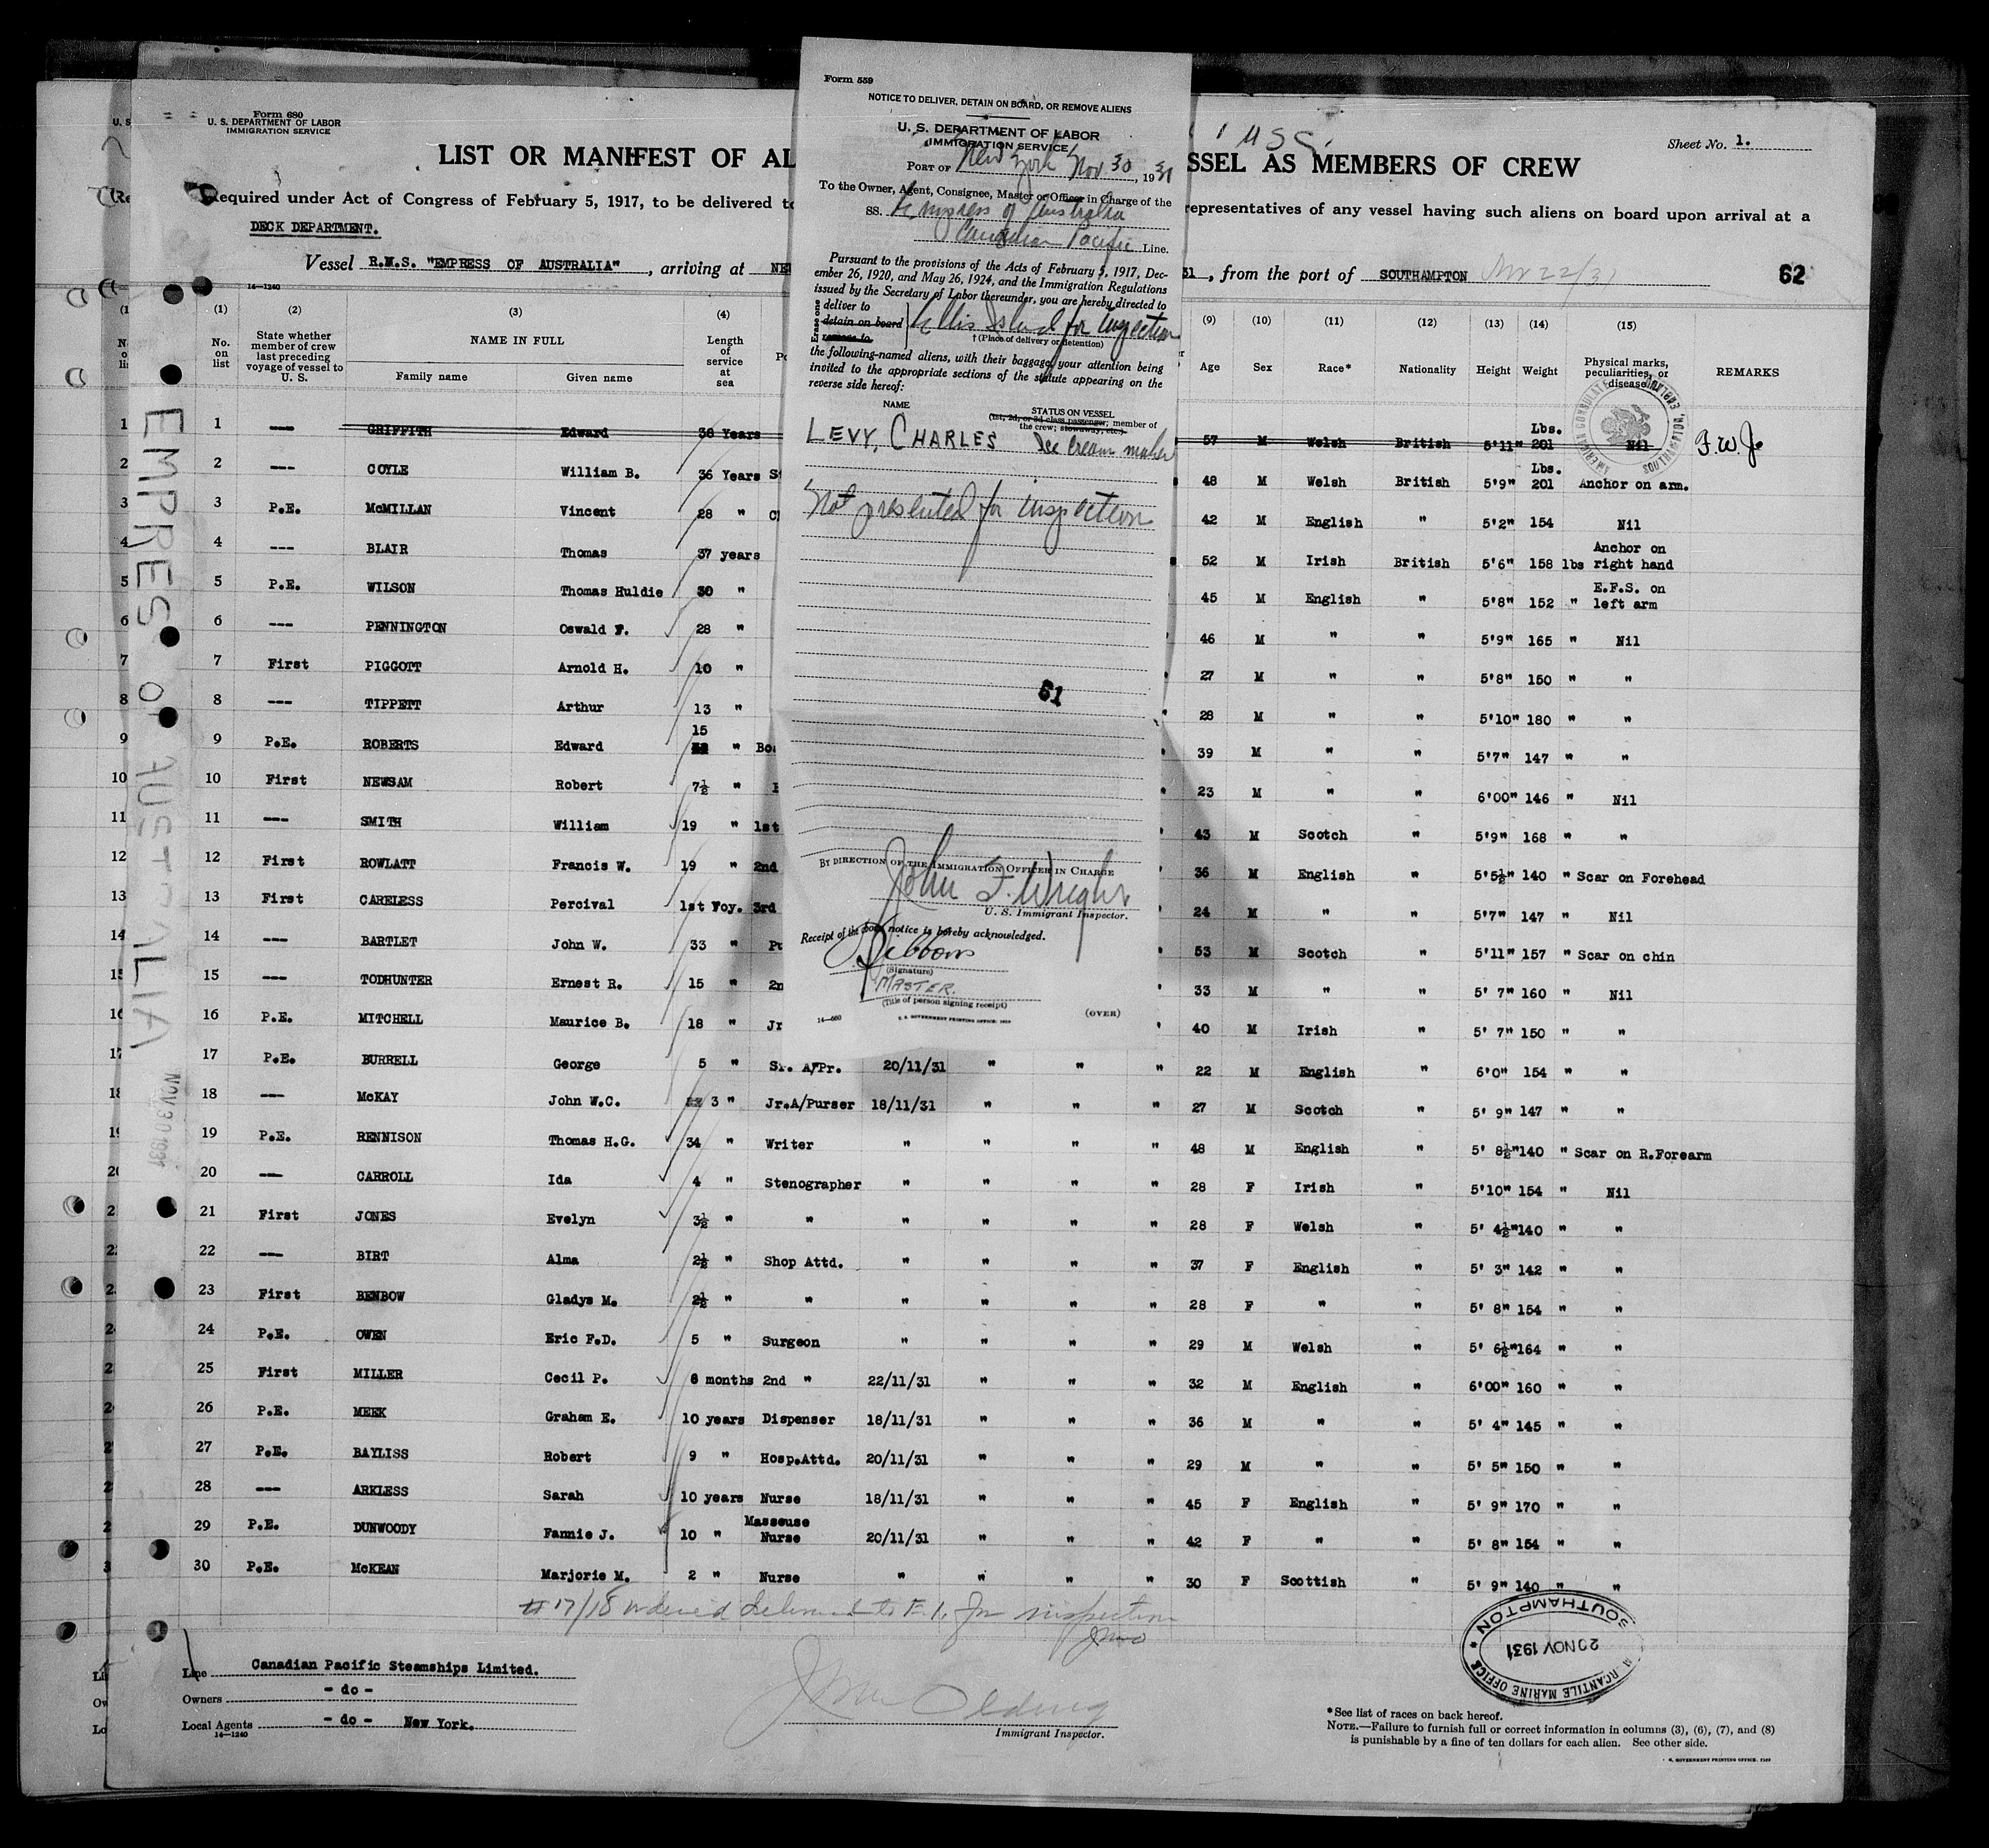 Form 559
NOTICE TO DELIVER, DETAIN ON BOARD, OR REMOVE ALIENS
U. S. DEPARTMENT OF LABOR
IMMIGRATION SERVICE
PORT OF New York Nov 30, 1931
To the Owner, Agent, Consignee, Master or Officer in Charge of the
SS. Empress of Australia
Canadian Pacific Line.
Pursuant to the provisions of the Acts of February 5, 1917, Dec-
ember 26, 1920, and May 26, 1924, and the Immigration Regulations
issued by the Secretary of Labor thereunder, you are hereby directed to
Erase one
deliver to
detain on board
remove to
Ellis Island for Inspection
† (Place of delivery or detention)
the following-named aliens, with their baggage, your attention being
invited to the appropriate sections of the statute appearing on the
reverse side hereof:
NAME
STATUS ON VESSEL
(1st, 2d, or 3d class passenger; member of
the crew; stowaway, etc.)
LEVY, CHARLES Ice Cream maker
Not presented for inspection
61
BY DIRECTION OF THE IMMIGRATION OFFICER IN CHARGE
John F. Wright
U. S. Immigrant Inspector.
Receipt of the above notice is hereby acknowledged.
(Signature)
MASTER.
(Title of person signing receipt)
14—660 U. S. GOVERNMENT PRINTING OFFICE (OVER)
Form 680
U. S. DEPARTMENT OF LABOR
IMMIGRATION SERVICE
Sheet No. 1.
LIST OR MANIFEST OF AL SSEL AS MEMBERS OF CREW
Required under Act of Congress of February 5, 1917, to be delivered to representatives of any vessel having such aliens on board upon arrival at a
DECK DEPARTMENT.
Vessel R.M.S. "EMPRESS OF AUSTRALIA", arriving at NE 31, from the port of SOUTHAMPTON Nov 22/31 62
14—1240
(1) (2) (3) (4) (9) (10) (11) (12) (13) (14) (15)
No. on list State whether member of crew last preceding voyage of vessel to U. S. NAME IN FULL Family name Given name Length of service at sea Age Sex Race* Nationality Height Weight Physical marks, peculiarities, or disease REMARKS
1 --- GRIFFITH Edward 38 Years 57 M Welsh British 5'11" Lbs. 201 Nil F.W.J.
2 --- COYLE William B. 36 Years S 48 M Welsh British 5'9" Lbs. 201 Anchor on arm.
3 P.E. McMILLAN Vincent 28 " C 42 M English " 5'2" 154 Nil
4 --- BLAIR Thomas 37 years 52 M Irish British 5'6" 158 lbs Anchor on right hand
5 P.E. WILSON Thomas Huldie 30 " 45 M English " 5'8" 152 " E.F.S. on left arm
6 --- PENNINGTON Oswald F. 28 " 46 M " " 5'9" 165 " Nil
7 First PIGGOTT Arnold H. 10 " 27 M " " 5'8" 150 " "
8 --- TIPPETT Arthur 13 " 28 M " " 5'10" 180 " "
9 P.E. ROBERTS Edward 15 " Bo 39 M " " 5'7" 147 " "
10 First NEWSAM Robert 7½ " 23 M " " 6'00" 146 " Nil
11 --- SMITH William 19 " 1st 43 M Scotch " 5'9" 168 " "
12 First ROWLATT Francis W. 19 " 2nd 36 M English " 5'5½" 140 " Scar on Forehead
13 First CARELESS Percival 1st Voy. 3rd 24 M " " 5'7" 147 " Nil
14 --- BARTLET John W. 33 " Pu 53 M Scotch " 5'11" 157 " Scar on chin
15 --- TODHUNTER Ernest R. 15 " 2n 33 M " " 5' 7" 160 " Nil
16 P.E. MITCHELL Maurice B. 18 " Jr 40 M Irish " 5' 7" 150 " "
17 P.E. BURRELL George 5 " Sr. A/Pr. 20/11/31 " " " 22 M English " 6'0" 154 " "
18 --- McKAY John W.C. 3 " Jr.A/Purser 18/11/31 " " " 27 M Scotch " 5' 9" 147 " "
19 P.E. RENNISON Thomas H.G. 34 " Writer " " " " 48 M English " 5' 8½" 140 " Scar on R.Forearm
20 --- CARROLL Ida 4 " Stenographer " " " " 28 F Irish " 5'10" 154 " Nil
21 First JONES Evelyn 3½ " " " " " " 28 F Welsh " 5' 4½" 140 " "
22 --- BIRT Alma 2½ " Shop Attd. " " " " 37 F English " 5' 3" 142 " "
23 First BENBOW Gladys M. 2½ " " " " " " 28 F " " 5' 8" 154 " "
24 P.E. OWEN Eric F.D. 5 " Surgeon " " " " 29 M Welsh " 5' 6½" 164 " "
25 First MILLER Cecil P. 6 months 2nd " 22/11/31 " " " 32 M English " 6'00" 160 " "
26 P.E. MEEK Graham E. 10 years Dispenser 18/11/31 " " " 36 M " " 5' 4" 145 " "
27 P.E. BAYLISS Robert 9 " Hosp.Attd. 20/11/31 " " " 29 M " " 5' 5" 150 " "
28 --- ARKLESS Sarah 10 years Nurse 18/11/31 " " " 45 F English " 5' 9" 170 " "
29 P.E. DUNWOODY Fannie J. 10 " Masseuse Nurse 20/11/31 " " " 42 F " " 5' 8" 154 " "
30 P.E. McKEAN Marjorie M. 2 " Nurse " " " " 30 F Scottish " 5' 9" 140 " "
# 17/18 ordered delivered to E.I. for inspection
EMPRESS OF AUSTRALIA
NOV 30 1931
AMERICAN CONSULATE SOUTHAMPTON, ENGLAND
MERCANTILE MARINE OFFICE * SOUTHAMPTON *
20 NOV 1931
Line Canadian Pacific Steamships Limited.
Owners - do -
Local Agents - do - New York.
14—1240
Immigrant Inspector.
*See list of races on back hereof.
NOTE.—Failure to furnish full or correct information in columns (3), (6), (7), and (8)
is punishable by a fine of ten dollars for each alien. See other side.
U. S. GOVERNMENT PRINTING OFFICE